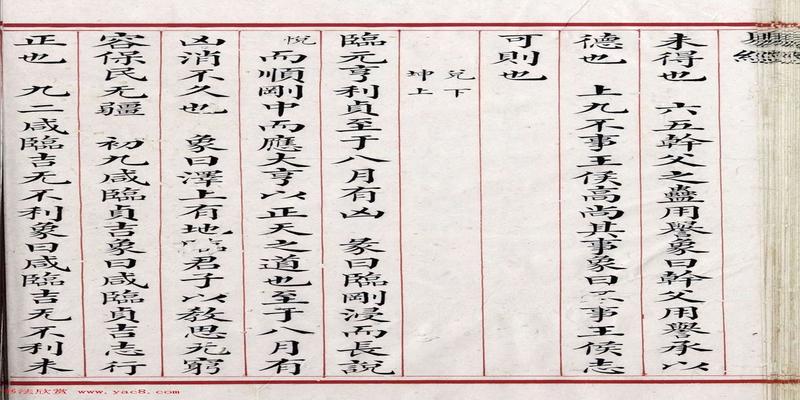 未得也 六五幹父之蠱用譽象曰幹父用譽承以
德也 上九不事王侯高尚其事象曰不事王侯志
可則也
兌下
坤上
臨元亨利貞至于八月有凶 彖曰臨剛浸而長說
悅而順剛中而應大亨以正天之道也至于八月有
凶消不久也 象曰澤上有地臨君子以教思无窮
容保民无疆 初九咸臨貞吉象曰咸臨貞吉志行
正也 九二咸臨吉无不利象曰咸臨吉无不利未
书法欣赏 www.yac8.com